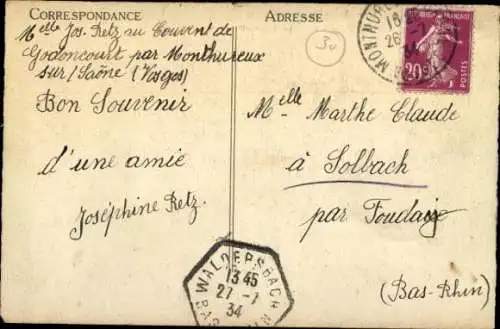 CORRESPONDANCE
Melle Jos. Retz au Couvent de
Godoncourt par Monthureux
sur/Saône (Vosges)
Bon Souvenir
d'une amie
Joséphine Retz.
ADRESSE
30
Melle Marthe Claude
à Solbach
par Fouday
(Bas-Rhin)
FRANÇAISE
20
POSTES
MONTHUREUX
WALDERSBACH
13 45
27 - 7
34
BAS-RHIN